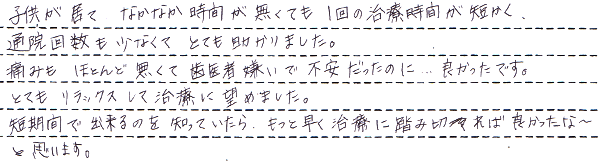 子供が居て なかなか時間が無くても 1回の治療時間が短かく、
通院回数も少なくて とても助かりました。
痛みも ほとんど無くて 歯医者嫌いで不安だったのに…良かったです。
とても リラックスして治療に望めました。
短期間で出来るのを知っていたら、もっと早く治療に踏み切れば良かったな〜
と思います。